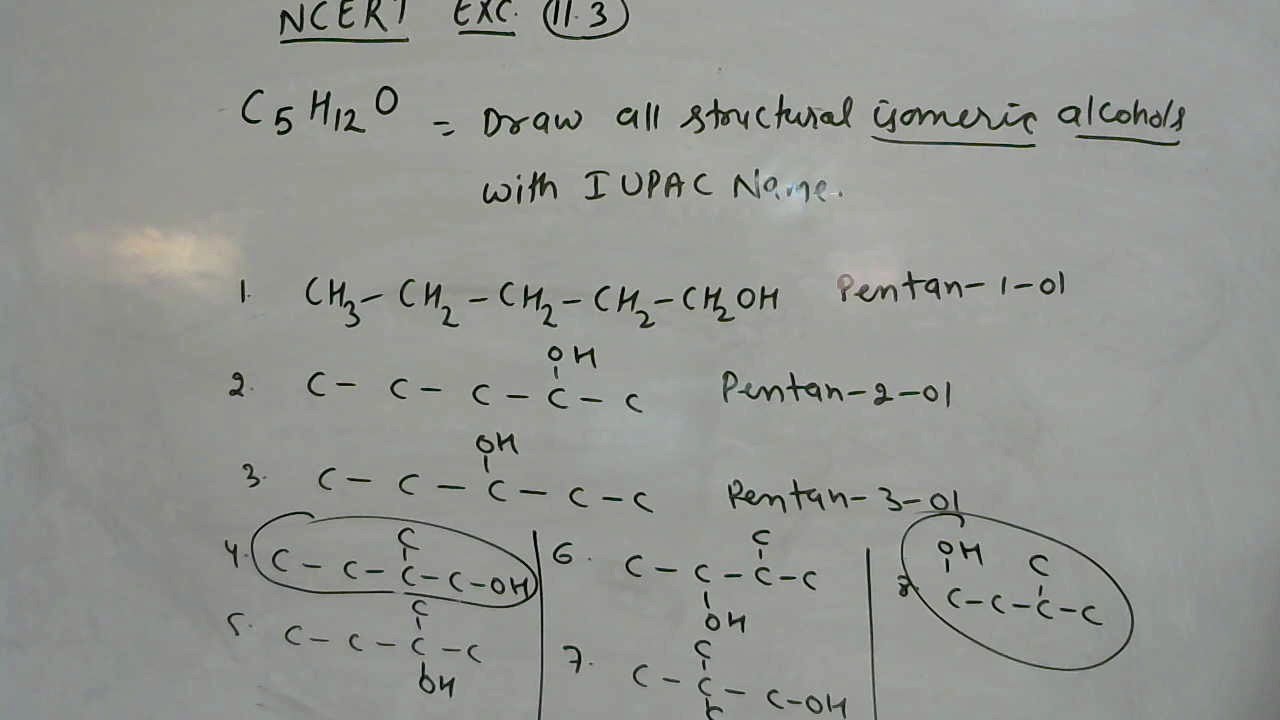 NCERT EXC. 11.3
C5H12O = Draw all structural isomeric alcohols
with IUPAC Name.
1. CH3 - CH2 - CH2 - CH2 - CH2OH Pentan-1-ol
OH
2. C - C - C - C - C Pentan-2-ol
OH
3. C - C - C - C - C Pentan-3-ol
C
4. C - C - C - C - OH
C
5. C - C - C - C
OH
C
6. C - C - C - C
OH
C
7. C - C - C - OH
C
OH C
8 C - C - C - C